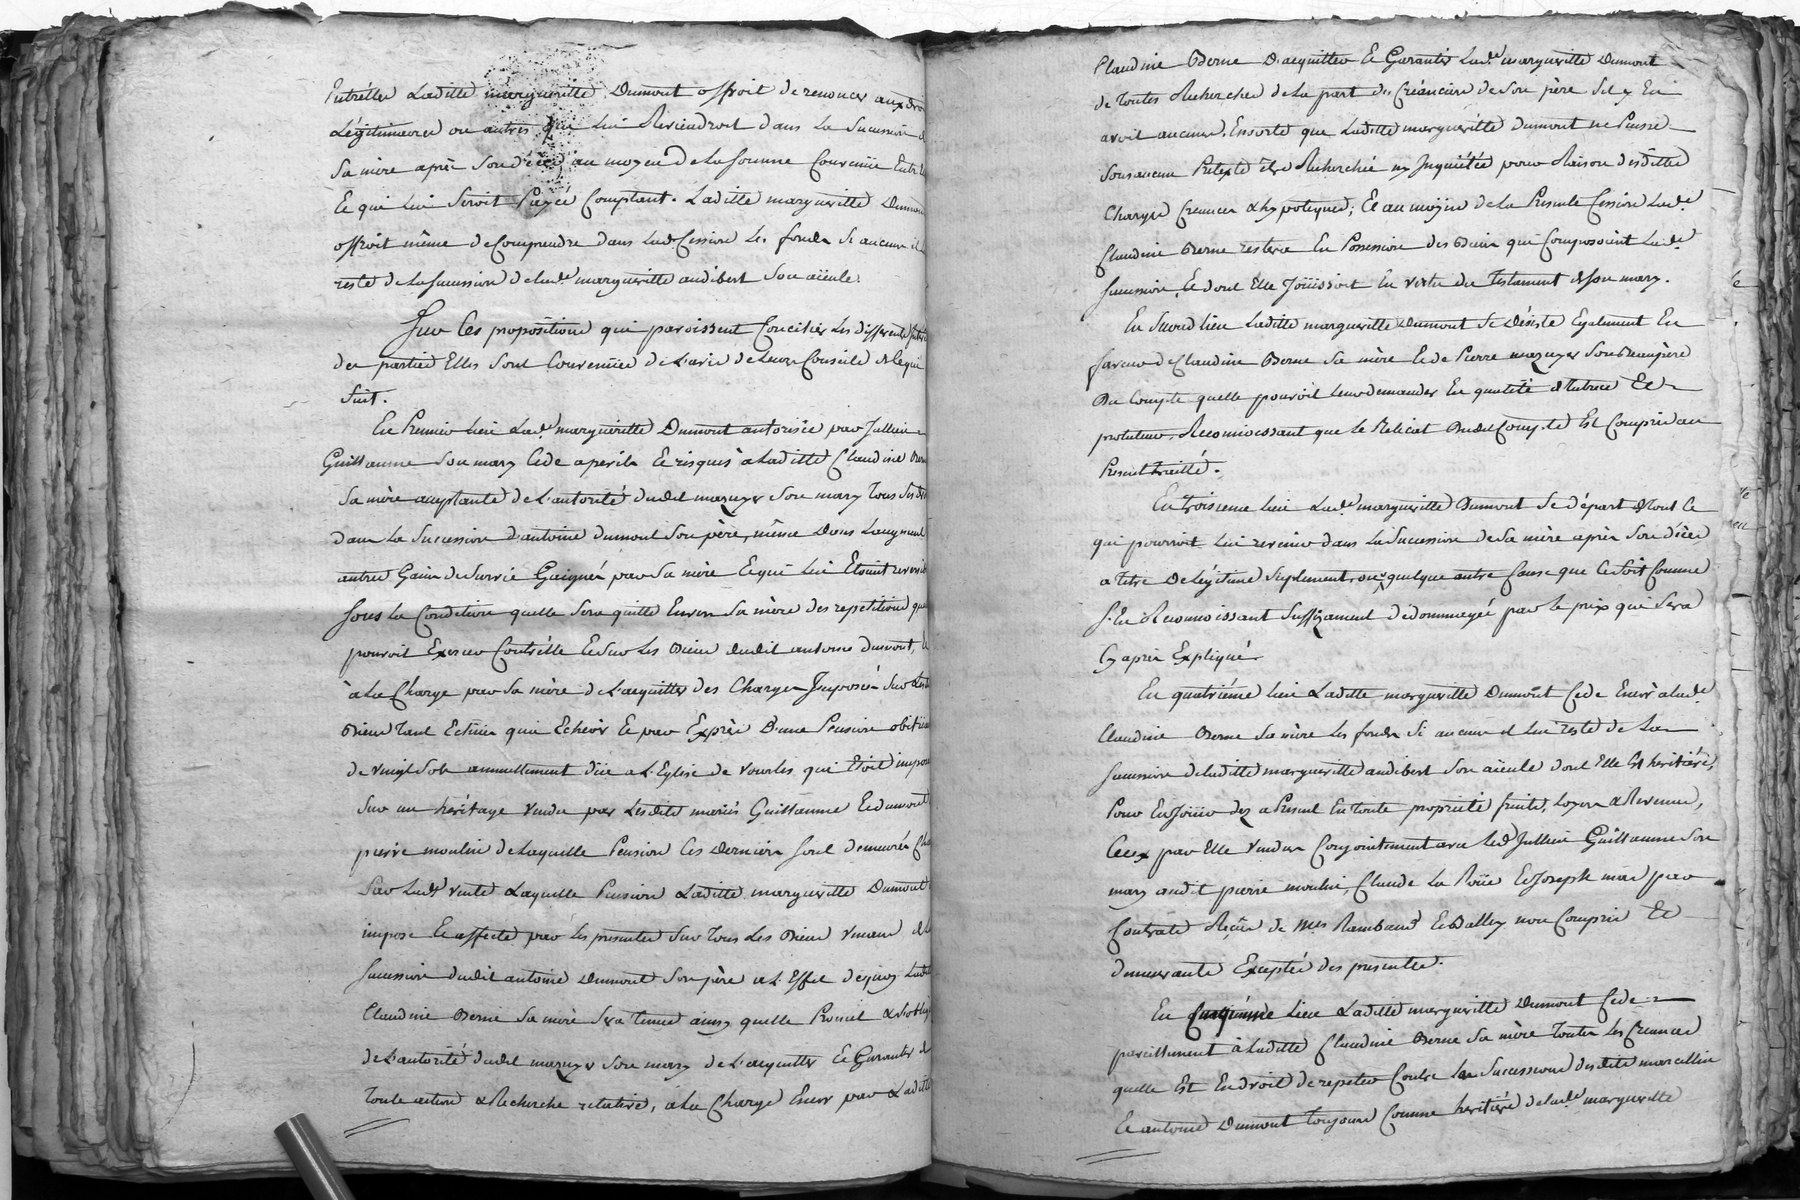 Entr'elles Laditte margueritte Dumont offroit de renoncer aux dro
Légitimaires ou autres que Lui Reviendroit dans La Sucession d
Sa mère après Son décéd, au moyen De La Somme Convenüe Entr'
Et qui Lui Seroit Payée Comptant. Laditte margueritte Dumon
offroit même de Comprendre dans Lad. Cession Les fonds Si aucuns il
reste de La Sucession de Lad.e margueritte audibert Son aïeule.
Sur Ces propositions qui paroissent Concilier Les differents
des parties Elles Sont Convenües de L'avis de Leurs Conseils de Ce qui
Suit.
En Premier Lieu Lad.e margueritte Dumont autorisée par Jullien
Guillaume Son mary Cede a perils Et risques à Laditte Claudine Berne
Sa mère acceptante de L'autorité dudit mazuyer Son mary Tous Ses dr
dans La Sucession d'antoine dumont Son père, même Dans L'augment
autres Gains de Survie Gaignés par Sa mère Et qui Lui Etoint reversi
Sous La Condition quelle Sera quitte Envers Sa mère des repetitions que
pouvoit Exercer Contr'elle Et Sur Les Biens dudit antoine dumont,
à La Charge par Sa mère de L'acquitter des Charges Imposés Sur Lesd
Biens Tant Echües qu'a Echeoir Et par Exprès D'une Pension
de vingt Sols annuellement düe a L'Eglise de vourles qui Etoit impos
Sur un héritage vendu par Lesdits mariés Guillaume Et dumont
pierre moulin de Laquelle Pension Ces Derniers Sont demeurés
Par Lad. vente Laquelle Pension Laditte margueritte Dumont
impose Et affecte par Les presentes Sur Tous Les Biens venans de
Sucession dudit antoine Dumont Son père a L'Effet dequoy Laditte
Claudine Berne Sa mère Sera tenue ainsy quelle Promet & S'oblige
de L'autorité dudit mazuyer Son mary de L'acquitter Et Garantir de
Toute action & Recherche relative, à La Charge Encor par Laditte
Claudine Berne D'acquitter Et Garantir Lad.e margueritte Dumont
de Toutes Recherches de La part des Créanciers de Son père S'il y En
avoit aucuns. Ensorte que Laditte margueritte dumont ne Puisse
Sous aucun Pretexte être Recherchée ny Inquiétée pour Raison desdittes
Charges Creances & hypoteques; Et au moÿen de La Presente Cession Lad.e
Claudine Berne restera En Possession des Biens qui Composoient Lad.e
Sucession, Et dont Elle Joüissoit En vertu du Testament de Son mary.
En Second Lieu Laditte margueritte Dumont Se Désiste Egalement En
faveur de Claudine Berne Sa mère Et de Pierre mazuyer Son Beaupère
Du Compte quelle pouvoit Leur demander En qualité de Tutrice Et
protuteur, Reconnoissant que Le Relicat Dudit Compte Est Compris au
Present Traitté.
En Troisieme Lieu Lad.e margueritte Dumont Se départ de Tout Ce
qui pourroit Lui revenir dans La Sucession de Sa mère après Son décès,
a Titre De Légitime Suplement, ou quelque autre Cause que Ce Soit Comme
S'En Reconnoissant Suffizament dédommagée par Le prix qui Sera
Cy après Expliqué.
En quatriéme Lieu Laditte margueritte Dumont Cede Encor à Lad.e
Claudine Berne Sa mère Les fonds Si aucuns il Lui reste de La
Sucession de Laditte margueritte audibert Son aïeule dont Elle Est héritiére,
Pour En Joüir dez a Present En Toute proprieté fruits, Loyers & Revenus,
Ceux par Elle vendus Conjointement avec Led. Jullien Guillaume Son
mary audit pierre moulin, Claude La Roüe Et Joseph par
Contrats Reçûs de M.es Rambaud Et Dalley non Compris Et
demeurants Exceptés des presentes.
En Cinquiéme Lieu Laditte margueritte Dumont Cede
pareillement à Laditte Claudine Berne Sa mère Toutes Les Creances
quelle Est En droit de repeter Contre La Successions desdits marcellin
Et antoine Dumont Toujours Comme heritière de Lad.e margueritte